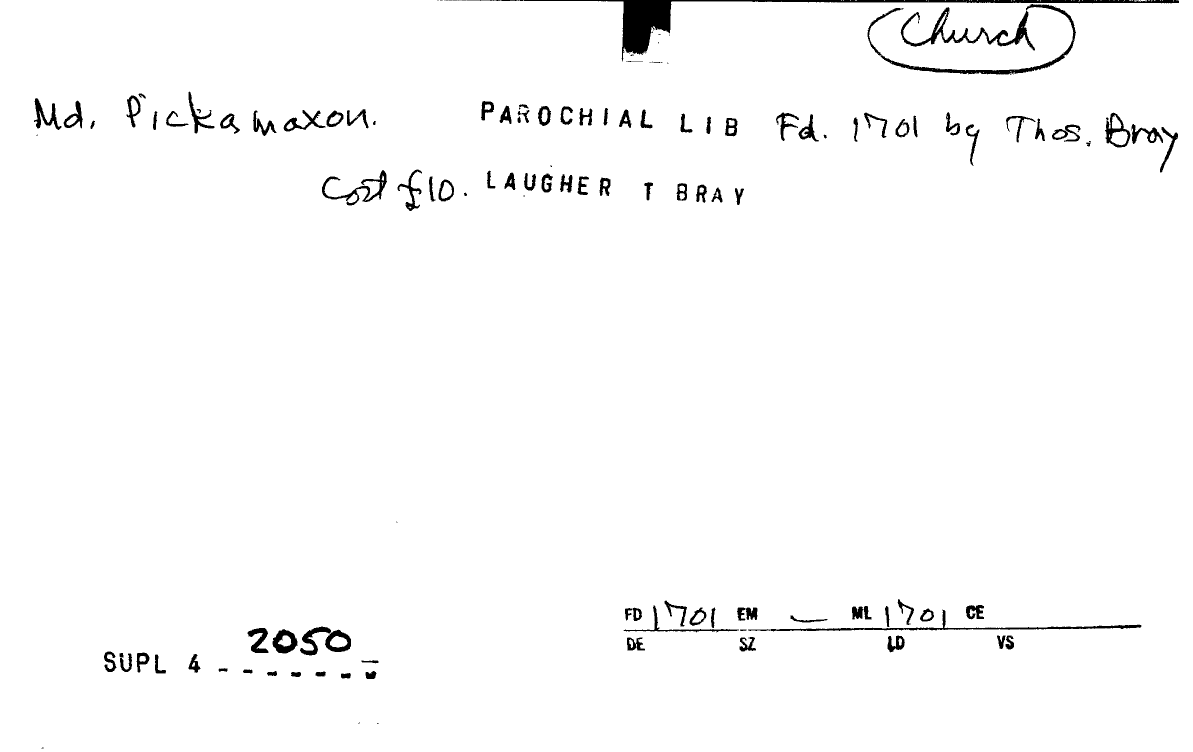 Church
Md. Pickamaxon. PAROCHIAL LIB Fd. 1701 by Thos. Bray
Cost £10. LAUGHER T BRAY
FD 1701 EM — ML 1701 CE
DE SZ LD VS
2050
SUPL 4 - - - - - - -